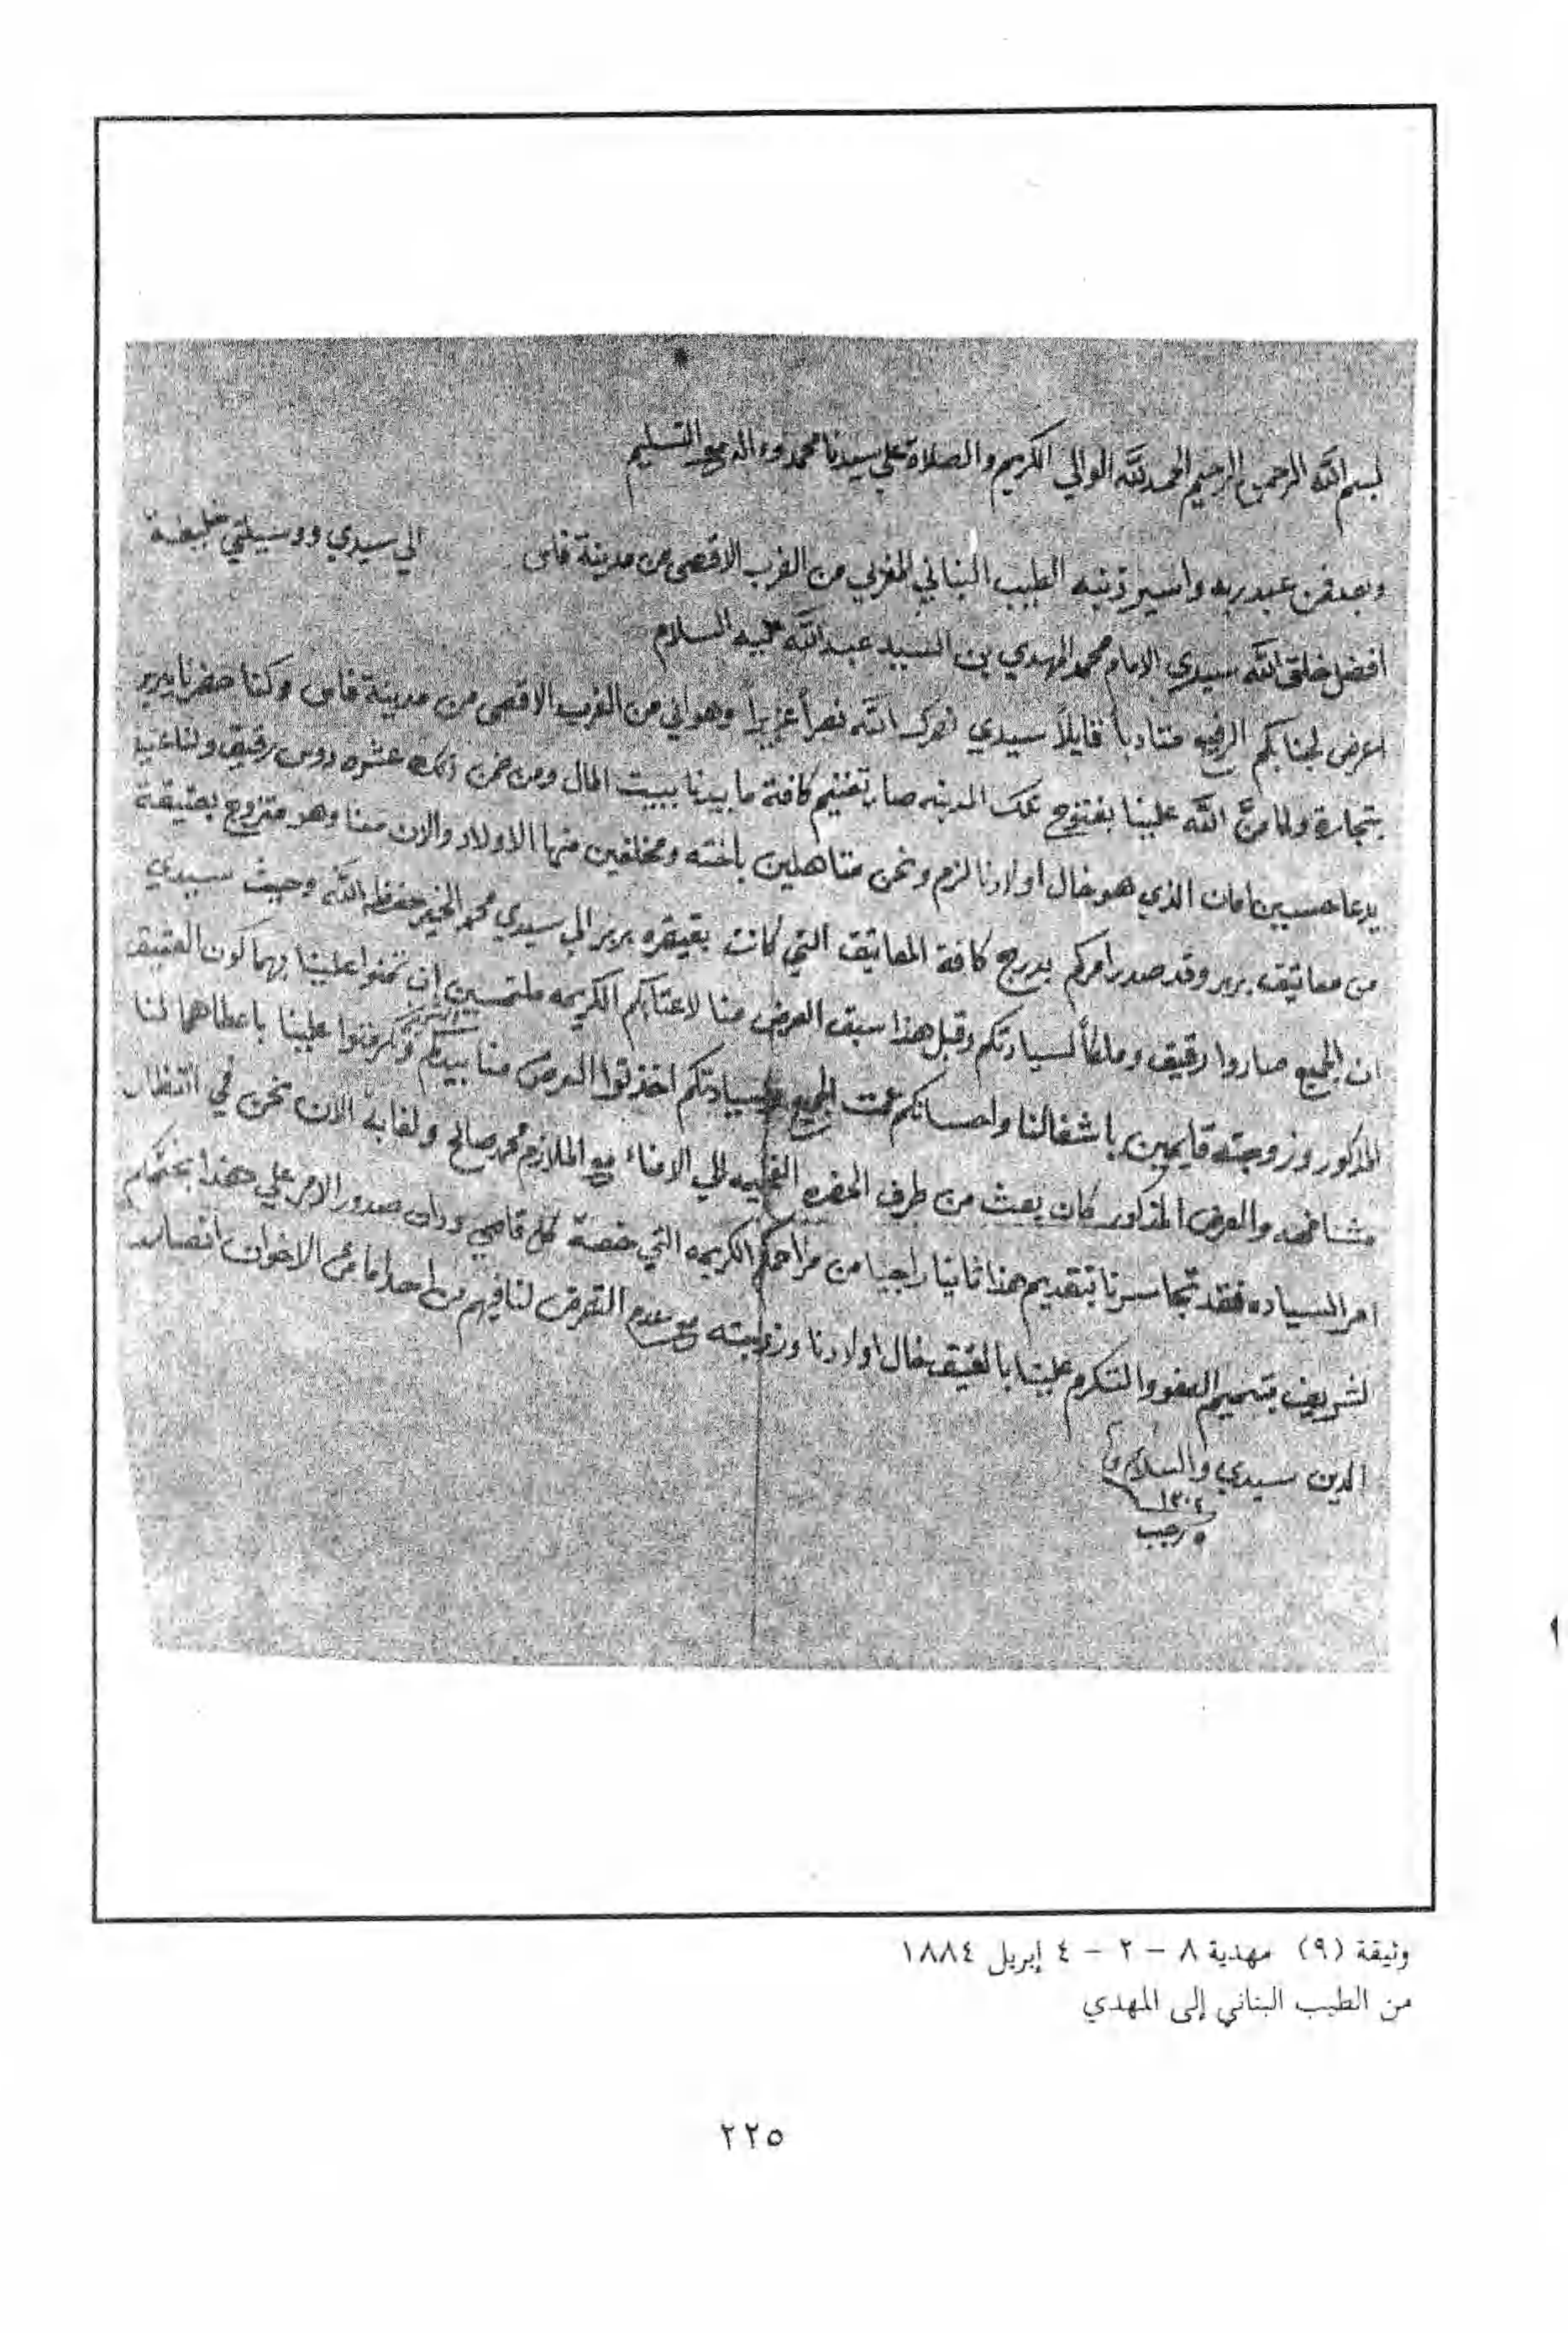 بسم الله الرحمن الرحيم الحمد لله الوالي الكريم والصلاة علي سيدنا محمد وءاله مع التسليم
وبعد فمن عبد ربه واسير ذنبه الطيب البناني المغربي من الغرب الاقصى من مدينة فاس الي سيدي ووسيلتي خليفة
افضل خلق الله سيدي الامام محمد المهدي بن السيد عبد الله عليه السلام
اعرض لجنابكم الرفيع متادباً قايلاً سيدي نصرك الله نصراً عزيزاً وهو اني من الغرب الاقصى من مدينة فاس وكنا حضرنا بربر
بتجارة ولما منَّ الله علينا بفتوح تلك المدينه صار تغنيم كافة ما بيدنا ببيت المال ومن ضمن ذلك عشره روس رقيق ولنا عتيق
يدعا حسين امان الذي هو خال اولادنا لزم ونحن متاهلين باخته ومخلفين منها الاولاد والان معنا وهو متزوج بعتيقة
من معاتيق بربر وقد صدر امركم بدرج كافة المعاتيق التي كانت ببربر الي سيدي محمد الخير حفظه الله وحيث سيدي
ان الجميع صاروا رقيق وملكاً لسيادتكم وقبل هذا سبق العرض منا لاعتابكم الكريمه ملتمسين ان تمنوا علينا بهما كون العتيق
المذكور وزوجته قايمين باشغالنا واحسانكم عمت الجميع وسيادتكم اخذتوا العرض منا بيدكم وتكرمتوا علينا باعطاهما لنا
مشافهه والعرض المذكور كان بعث من طرف الحضره الي الامناء مع الملازم محمد صالح ولغاية الان نحن في انتظار
امر السياده فقد تجاسرنا بتقديم هذا ثانيا راجيا من مراحمكم الكريمه التي لكل قاصي ودان صدور الامر علي هذا بختمكم
الشريف بتتميم العفو والتكرم علينا بالعتيق خال اولادنا وزوجته مع عدم التعرض لنا فيهم من احد اما من الاخوان انصار
الدين سيدي والسلام
١٣٠٢
٥ رجب
وثيقة (٩) مهدية ٨ – ٢ – ٤ إبريل ١٨٨٤
من الطيب البناني إلى المهدي
٢٢٥